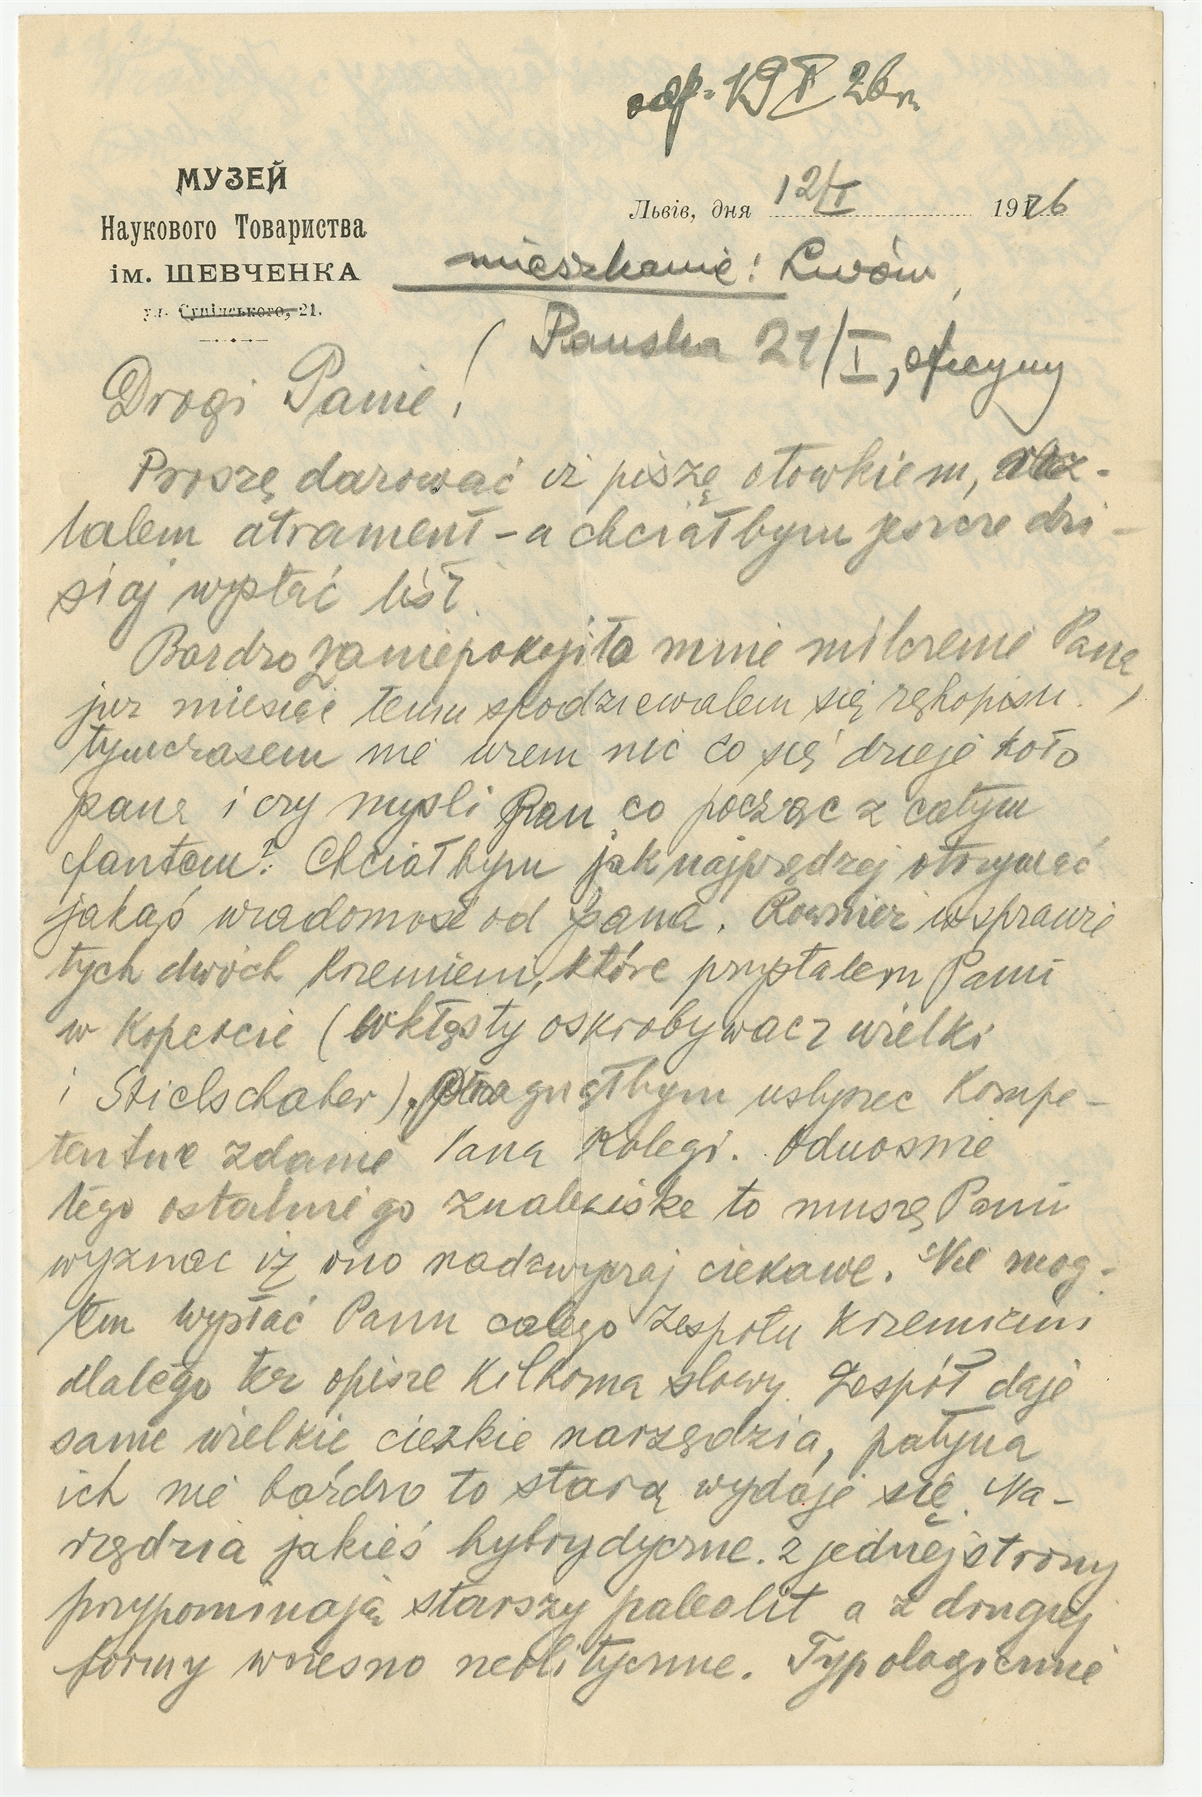 odp. 19 I 26 r.
МУЗЕЙ
Наукового Товариства
ім. ШЕВЧЕНКА
ул. Супінського, 21.
Львів, дня 12/I 1926
mieszkanie: Lwów,
(Panska 21/I, oficyny
Drogi Panie!
Proszę darować iż piszę otowkiem, roz-
lalem atrament - a chciałbym jeszcze dzi-
siaj wysłać list.
Bardzo zaniepokojiła mnie milczenie Pana,
juz miesiąc temu spodziewalem się rękopisu.
tymczasem nie wiem nic co się dzieje koło
pana i czy mysli Pan co począc z całym
fantem? Chciałbym jak najprędzej otrzymać
jakąś wiadomość od pana. Rownież w sprawie
tych dwóch krzemieni, które przysłalem Panu
w kopercie (wklęsły oskrobywacz wielki
i Stielschaber), pragnąłbym uslyszec kompe-
tentne zdanie Pana Kolegi. Odnosnie
tego ostatniego znaleziska to muszę Panu
wyznac iż ono nadzwyczaj ciekawe. Nie mog-
łem wysłać Panu calego zespołu krzemieni
dlatego tez opisze kilkoma slowy. Zespół daje
same wielkie, ciezkie narzędzia, patyna
ich nie bardzo to starą wydaje się. Na-
rzędzia jakieś hybrydyczne. z jednej strony
przypominają starszy paleolit a z drugiej
formy wczesno neolityczne. Typologicznie